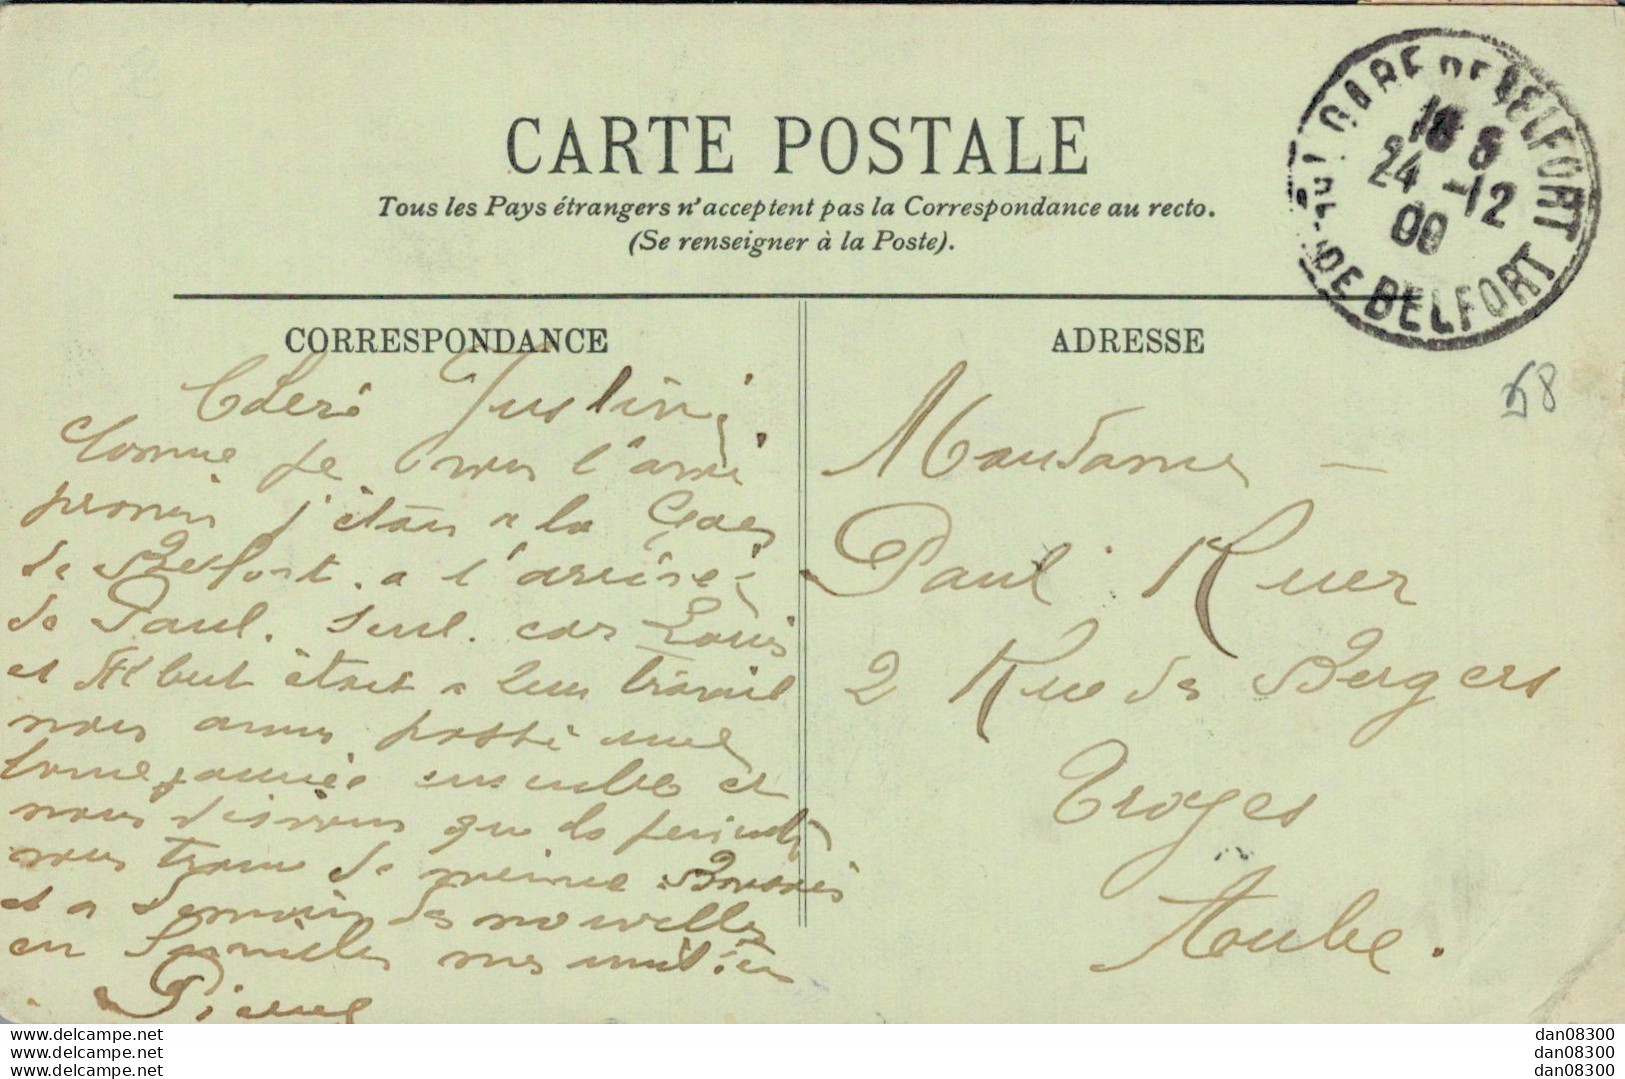 CARTE POSTALE
Tous les Pays étrangers n'acceptent pas la Correspondance au recto.
(Se renseigner à la Poste).
GARE DE BELFORT
18 5
24 -12
09
DE BELFORT
CORRESPONDANCE
Chère Justine,
Comme je vous l'avais
promis j'étais a la Gare
de Belfort. a l'arrivée
de Paul. seul. car Louis
et Albert était a leur travail
nous avons passé une
bonne journée ensemble et
nous disirons que la
vous trouve de meme Bonnes
et a demain de nouvelles
en famille
Pierre
ADRESSE
Madame
Paul Ruer
2 Rue des Bergers
Troyes
Aube.
58
dan08300
dan08300
dan08300
www.delcampe.net
www.delcampe.net
www.delcampe.net